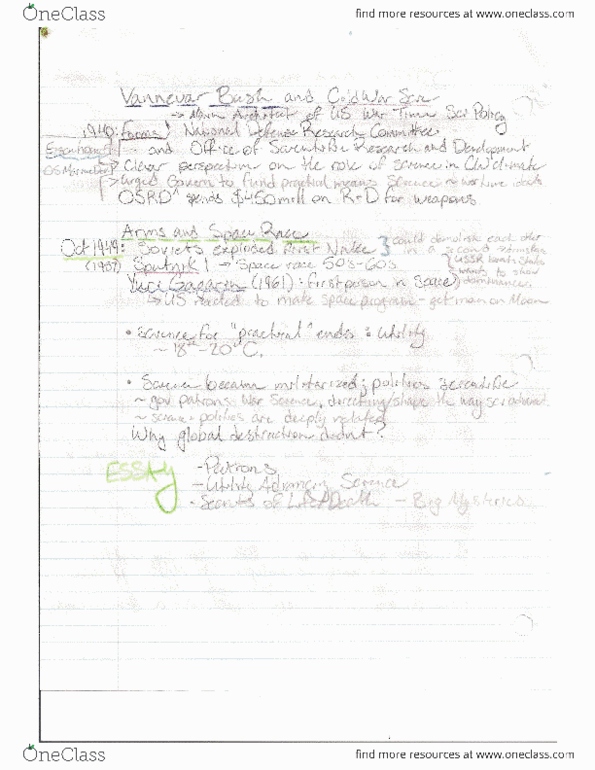 OneClass
find more resources at www.oneclass.com
Vannevar Bush and Cold War Sci
→ Main Architect of US War Time Sci Policy
1940: Forms National Defense Research Committee
and Office of Scientific Research and Development
→ Clear perspective on the role of science in CW climate
→ Urged Govern to fund practical means science
OSRD spends $450 mill on R+D for weapons
Arms and Space Race
Oct 1949: Soviets exploded first Nuke } could demolish each other
in a second
(1957) Sputnik 1 → Space race 50's-60s
{ USSR
wants to show
dominance
Yuri Gagarin (1961): first person in Space
↳ US reacted to make space program - get man on Moon
• Science for "practical" ends: Utility
~ 18th-20th C.
• Science became militarized; politics scientific
~ gov patrons war science, directing/shape the way sci
~ science + politics are deeply related
Why global destruction didn't?
ESSAY
- Patrons
- Utility Advancing Science
- Secrets of Life/Death - Big Mysteries
OneClass
find more resources at www.oneclass.com